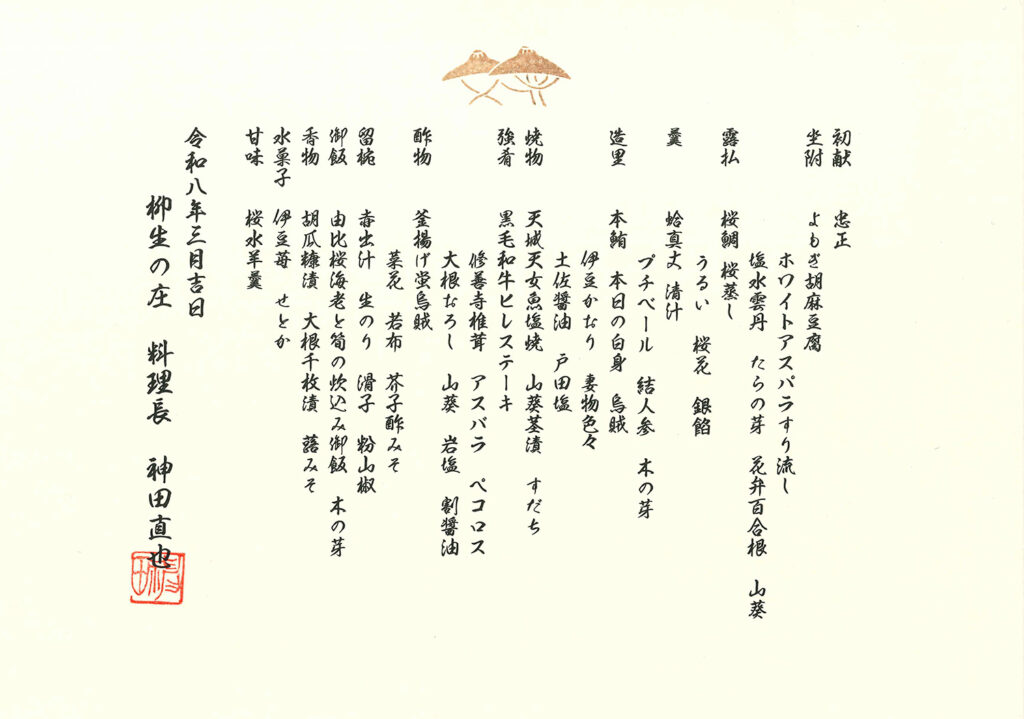 初献 忠正
坐附 よもぎ胡麻豆腐
ホワイトアスパラすり流し
塩水雲丹 たらの芽 花弁百合根 山葵
露払 桜鯛 桜蒸し
うるい 桜花 銀餡
羹 蛤真丈 清汁
プチベール 結人参 木の芽
造里 本鮪 本日の白身 烏賊
伊豆かなり 妻物色々
土佐醤油 戸田塩
焼物 天城天女魚塩焼 山葵茎漬 すだち
強肴 黒毛和牛ヒレステーキ
修善寺椎茸 アスパラ ペコロス
大根おろし 山葵 岩塩 割醤油
酢物 釜揚げ蛍烏賊
菜花 若布 芥子酢みそ
留椀 赤出汁 生のり 滑子 粉山椒
御飯 由比桜海老と筍の炊込み御飯 木の芽
香物 胡瓜糠漬 大根千枚漬 蕗みそ
水菓子 伊豆苺 せとか
甘味 桜水羊羹
令和八年三月吉日
柳生の庄 料理長 神田直也